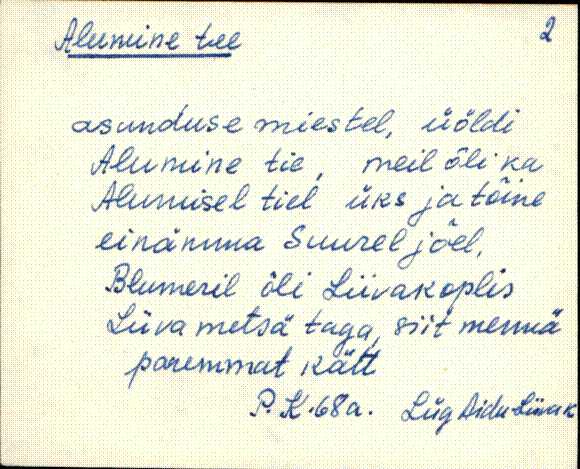 Alumine tee 2
asunduse miestel, üöldi
Alumine tie, meil õli ka
Alumisel tiel üks ja tõine
einämua Suurel jõel.
Blumeril õli Liivakoplis
Liiva metsä taga, siit mennä
paremmat kätt
P. K. 68a. Lüg Aidu-Liiva k